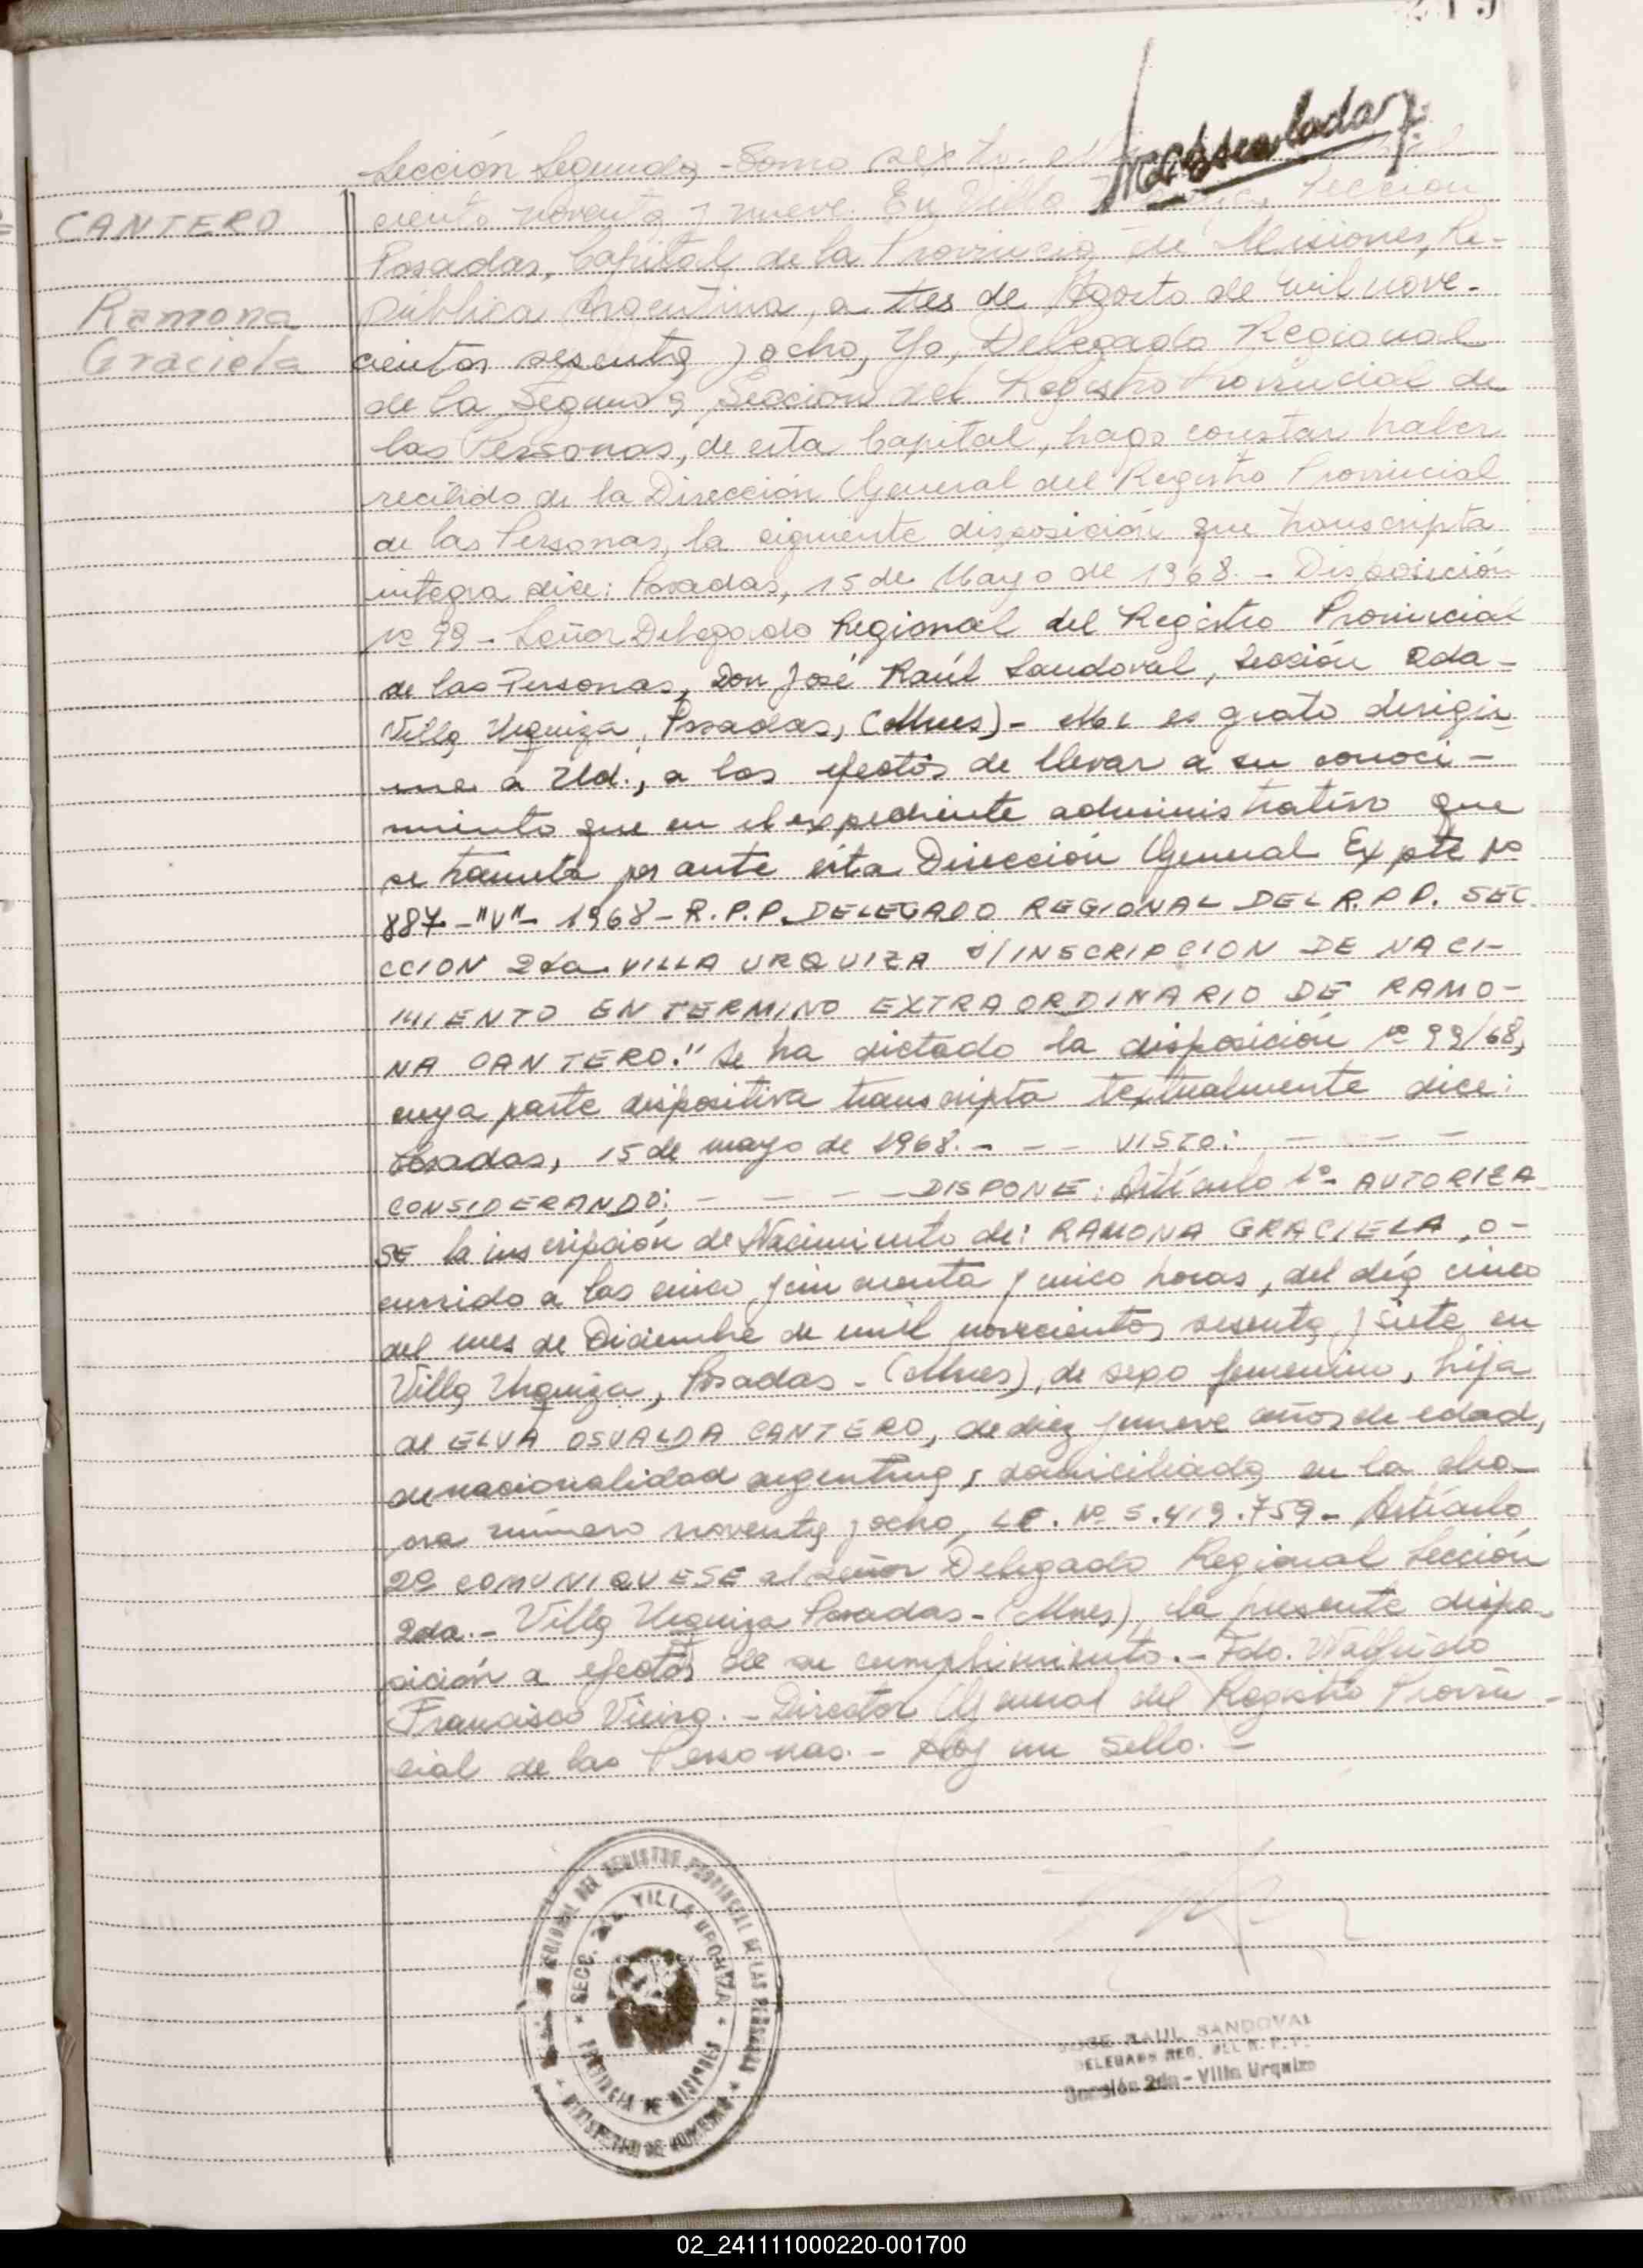 CANTERO
Ramona
Graciela
Sección Segunda - Tomo sexto
ciento noventa y nueve. En Villa Urquiza, Sección
Posadas, Capital de la Provincia de Misiones, Re-
pública Argentina, a tres de Agosto de mil nove-
cientos sesenta y ocho, Yo, Delegado Regional
de la Segunda Sección del Registro Provincial de
las Personas, de esta Capital, hago constar haber
recibido de la Dirección General del Registro Provincial
de las Personas, la siguiente disposición que transcripta
integra dice: Posadas, 15 de Mayo de 1968. - Disposición
Nº 99 - Señor Delegado Regional del Registro Provincial
de las Personas, Don José Raúl Sandoval, Sección 2da -
Villa Urquiza, Posadas, (Mnes) - Me es grato dirigir
me a Ud., a los efectos de llevar a su conoci -
miento que en el expediente administrativo que
se tramita por ante ésta Dirección General Expte Nº
887 - "V" - 1968 - R.P.P. DELEGADO REGIONAL DEL R.P.P. SEC
CCION 2da VILLA URQUIZA s/INSCRIPCION DE NACI-
MIENTO EN TERMINO EXTRAORDINARIO DE RAMO-
NA CANTERO." se ha dictado la disposición Nº 99/68,
cuya parte dispositiva transcripta textualmente dice:
Posadas, 15 de mayo de 1968. - - - VISTO: - - - -
CONSIDERANDO: - - - - DISPONE: Artículo 1º - AUTORIZA
SE la inscripción de Nacimiento de: RAMONA GRACIELA, o-
currido a las cinco y cincuenta y cinco horas, del día cinco
del mes de Diciembre de mil novecientos sesenta y siete en
Villa Urquiza, Posadas - (Mnes), de sexo femenino, hija
de ELVA OSVALDA CANTERO, de diez y nueve años de edad,
de nacionalidad argentina, domiciliada en la cha-
cra número noventa y ocho, L.C. Nº 5.419.759 - Artículo
2º COMUNIQUESE al señor Delegado Regional Sección
2da. - Villa Urquiza Posadas - (Mnes), la presente dispo-
sición a efectos de su cumplimiento. - Fdo. Walfrido
Francisco Vieira. - Director General del Registro Provin -
cial de las Personas. - Hay un sello. -
REGIONAL DEL REGISTRO PROVINCIAL DE LAS PERSONAS
SECC. 2da. VILLA URQUIZA
PROVINCIA DE MISIONES
MINISTERIO DE GOBIERNO
JOSE RAUL SANDOVAL
DELEGADO REG. DEL R. P. P.
Sección 2da - Villa Urquiza
02_241111000220-001700